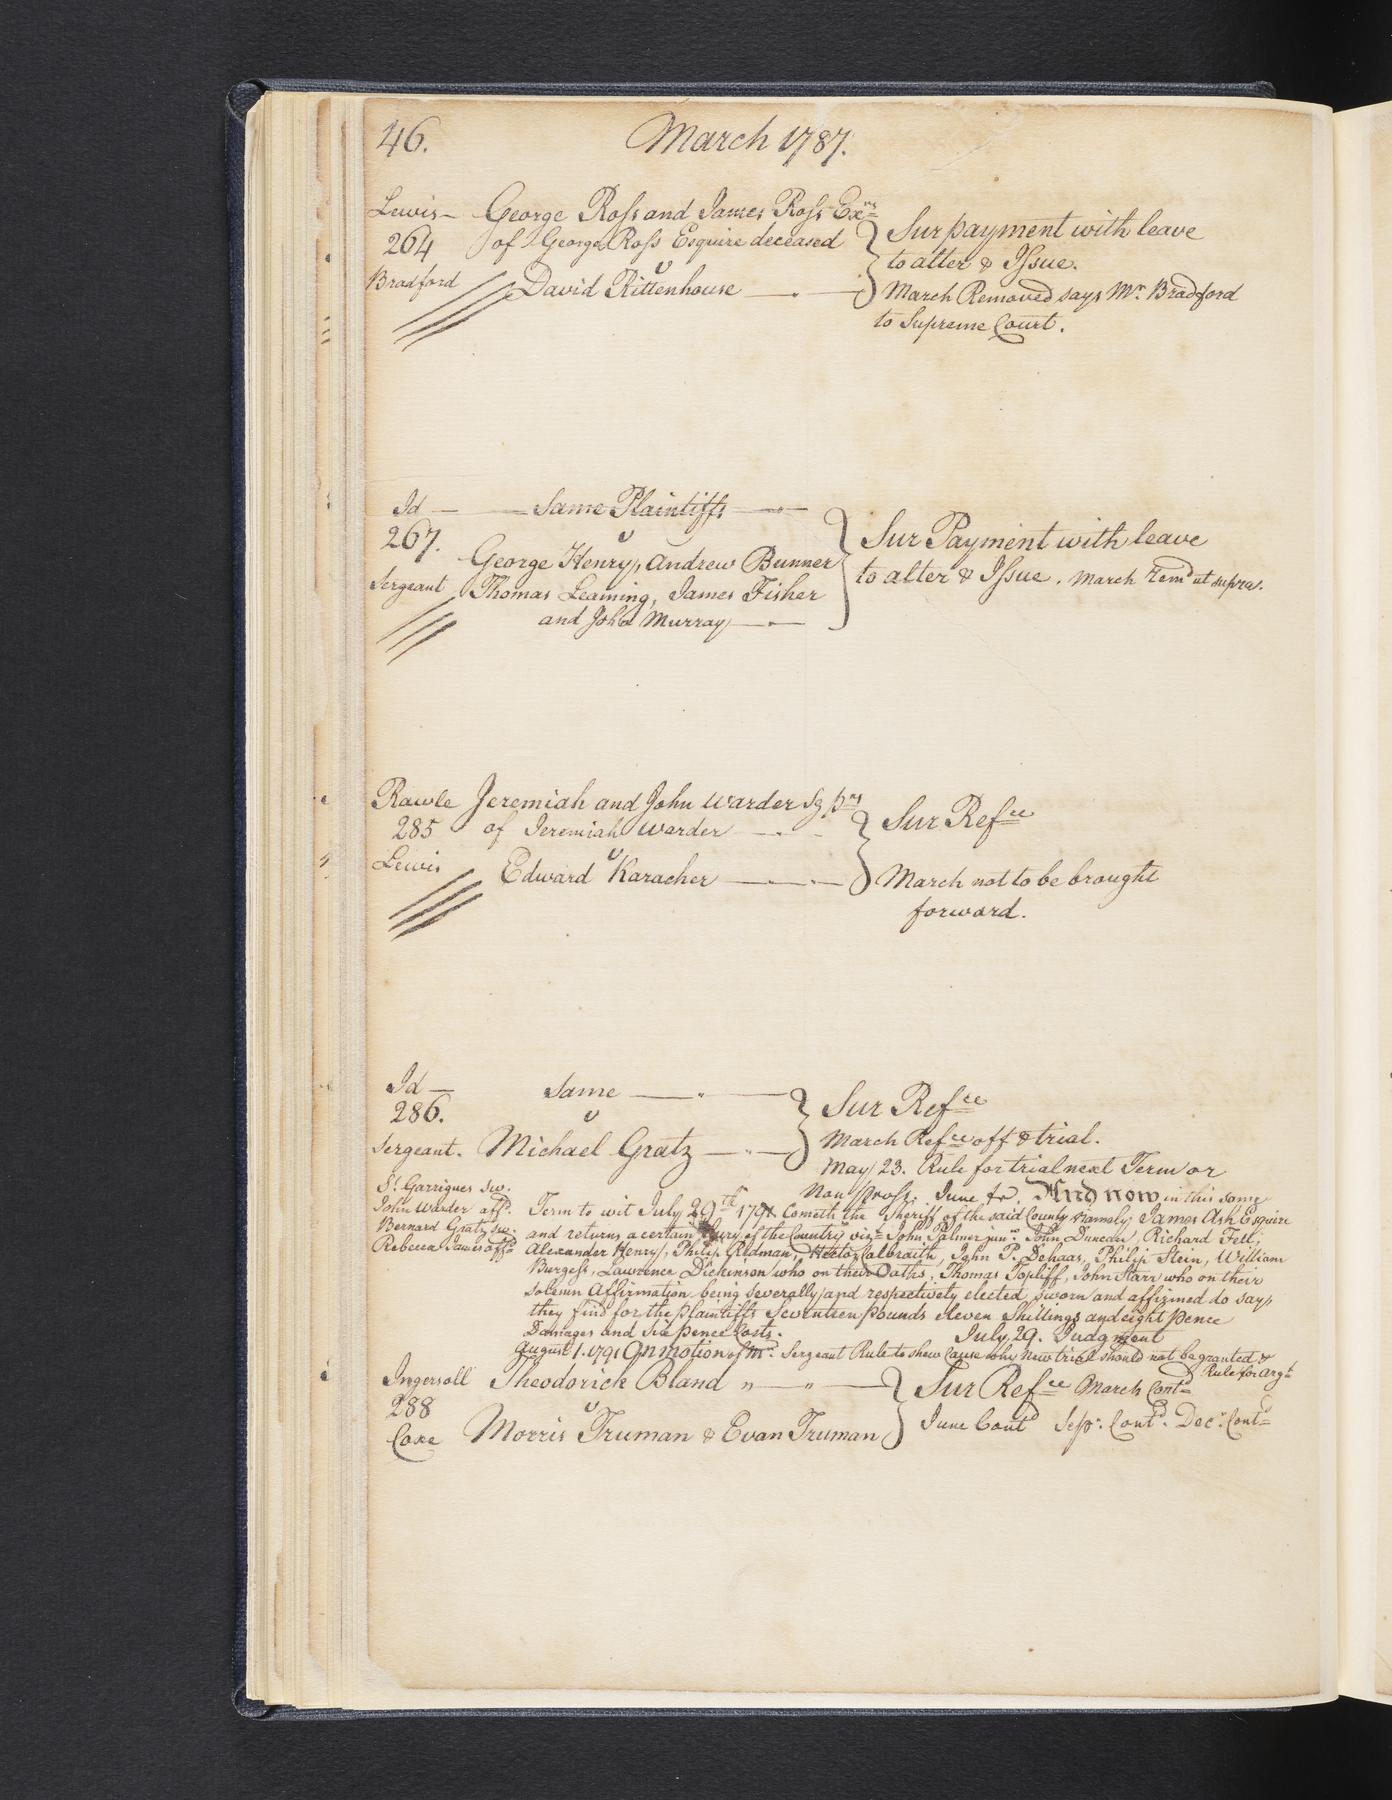 46. March 1787.
Lewis — George Ross and James Ross Exrs
264 of George Ross Esquire deceased
v
Bradford David Rittenhouse
Sur payment with leave
to alter & Issue.
March Removed says Mr. Bradford
to Supreme Court.
Id — Same Plaintiffs
267. v
George Henry, Andrew Bunner
Sergeant Thomas Leaming, James Fisher
and John Murray
Sur Payment with leave
to alter & Issue. March remd ut supra.
Rawle Jeremiah and John Warder
285 of Jeremiah Warder
v
Lewis Edward Karacher
Sur Refce
March not to be brought
forward.
Id — Same
286. v
Sergeant. Michael Gratz
Sur Refce
March Refce off & trial.
May 23. Rule for trial next Term or
Non pross. June fr. And now in this same
Sl Garrigues sw.
John Warder affd.
Bernard Gratz sw.
Rebecca James affd
Term to wit July 29th 1791 Cometh the Sheriff of the said County namely James Ash Esquire
and returns a certain Jury of the Country vizt John Palmer junr. John Duncan, Richard Fell,
Alexander Henry, Philip Redman, Hector Calbraith, John P. Dehaas, Philip Stein, William
Burgess, Lawrence Dickinson who on their Oaths, Thomas Topliff, John Starr who on their
solemn Affirmation being severally and respectively elected sworn and affirmed do say,
they find for the plaintiffs Seventeen pounds eleven Shillings and eight pence
Damages and six pence Costs. July 29. Judgment
August 1. 1791 On motion of Mr. Sergeant Rule to shew Cause why New trial should not be granted &
Rule for argt
Ingersoll Theodorick Bland
288 v
Coxe Morris Truman & Evan Truman
Sur Refce March Contd
June Contd Sepr. Contd. Decr. Contd